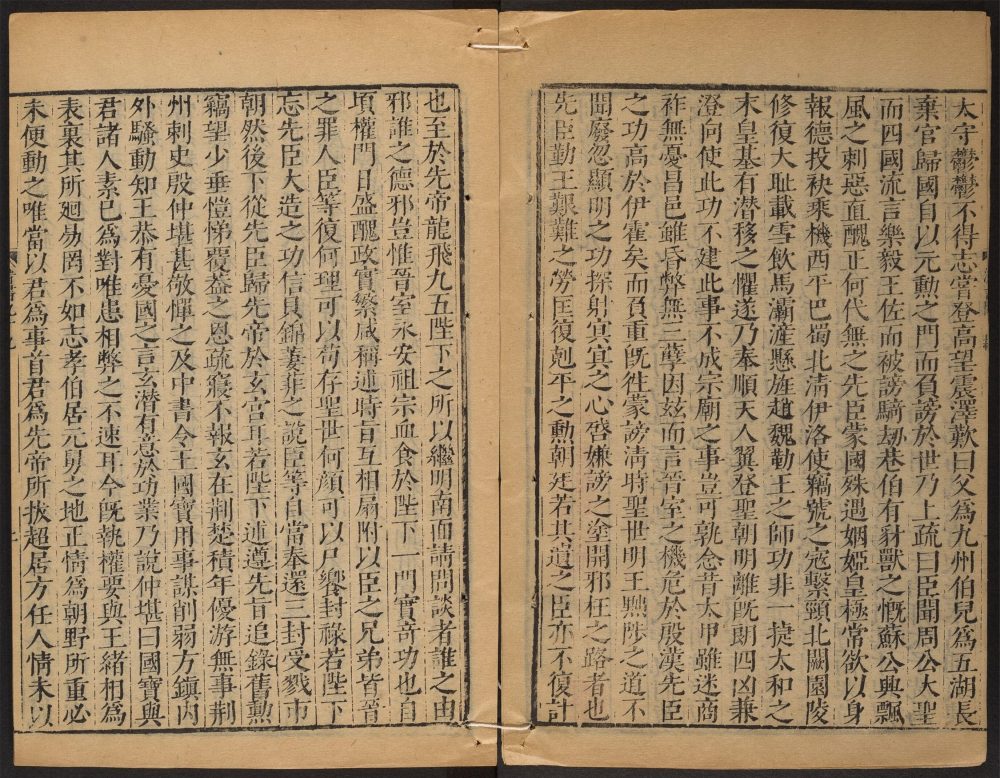 太守鬱鬱不得志嘗登高望震澤歎曰父爲九州伯兒爲五湖長
棄官歸國自以元勲之門而負謗於世乃上疏曰臣聞周公大聖
而四國流言樂毅王佐而被謗騎劫巷伯有豺獸之慨蘇公興飄
風之刺惡直醜正何代無之先臣蒙國殊遇姻婭皇極常欲以身
報德投袂乘機西平巴蜀北清伊洛使竊號之寇繫頸北闕園陵
修復大耻載雪飲馬灞滻懸旌趙魏勤王之師功非一捷太和之
末皇基有潛移之懼遂乃奉順天人翼登聖朝明離旣朗四凶兼
澄向使此功不建此事不成宗廟之事豈可孰念昔太甲雖迷商
祚無憂昌邑雖昏弊無三孽因兹而言晉室之機危於殷漢先臣
之功高於伊霍矣而負重旣往蒙謗淸時聖世明王黜陟之道不
聞廢忽顯明之功探射冥冥之心啓嫌謗之塗開邪枉之路者也
先臣勤王艱難之勞匡復剋平之勳朝廷若其遺之臣亦不復計
也至於先帝龍飛九五陛下之所以繼明南面請問談者誰之由
邪誰之德邪豈惟晉室永安祖宗血食於陛下一門實奇功也自
頃權門日盛醜政實繁咸稱述時旨互相扇附以臣之兄弟皆晉
之罪人臣等復何理可以苟存聖世何顔可以尸饗封祿若陛下
忘先臣大造之功信貝錦萋菲之說臣等自當奉還三封受戮市
朝然後下從先臣歸先帝於玄宮耳若陛下述遵先旨追錄舊勲
竊望少垂愷悌覆蓋之恩疏寢不報玄在荆楚積年優游無事荆
州刺史殷仲堪甚敬憚之及中書令王國寶用事謀削弱方鎭内
外騷動知王恭有憂國之言玄潛有意於功業乃說仲堪曰國寶與
君諸人素已爲對唯患相弊之不速耳今旣執權要與王緒相爲
表裏其所廻易罔不如志孝伯居元舅之地正情爲朝野所重必
未便動之唯當以君爲事首君爲先帝所拔超居方任人情未以